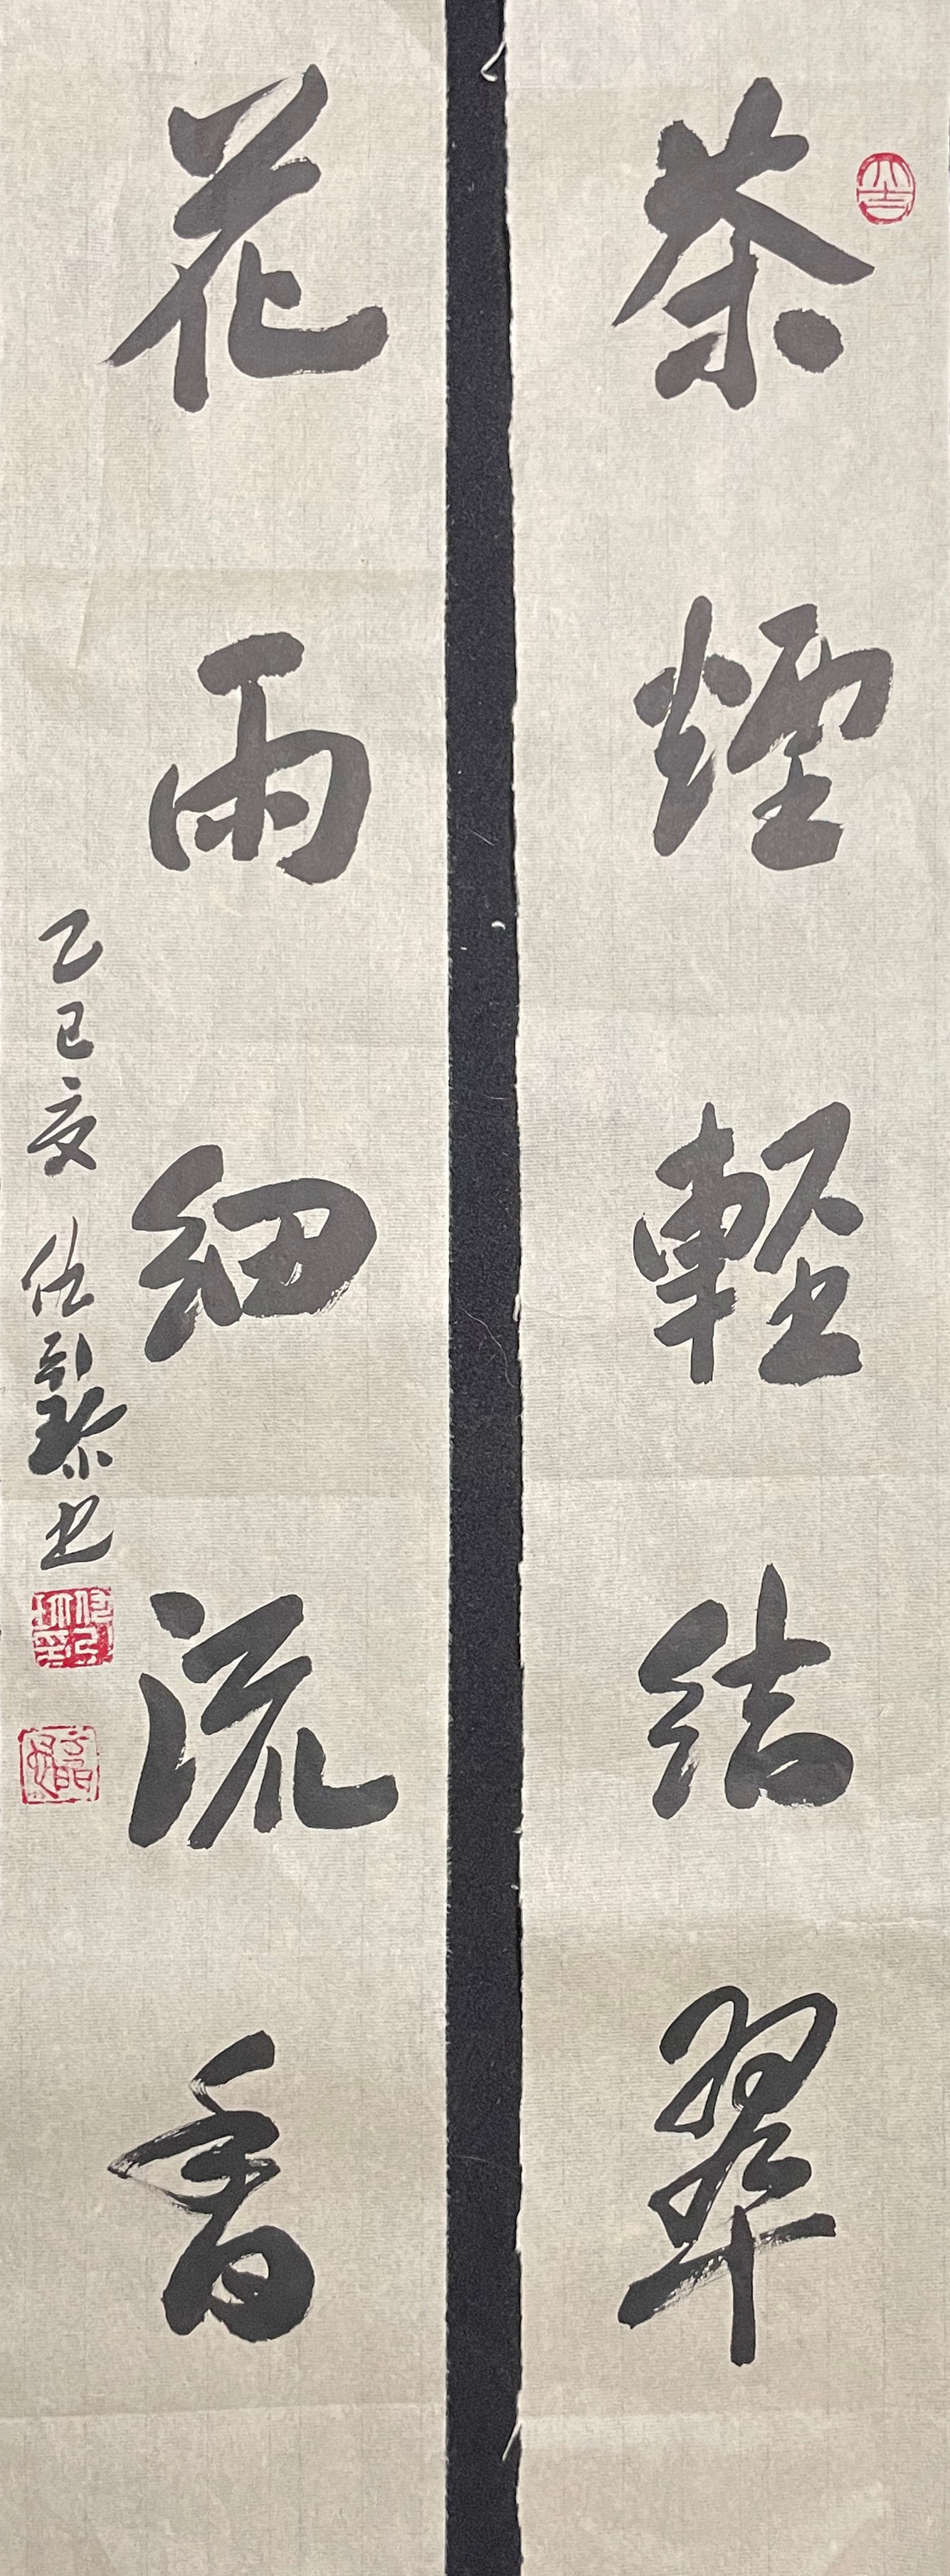 茶煙輕結翠
花雨細流香
乙巳夏 伍 書